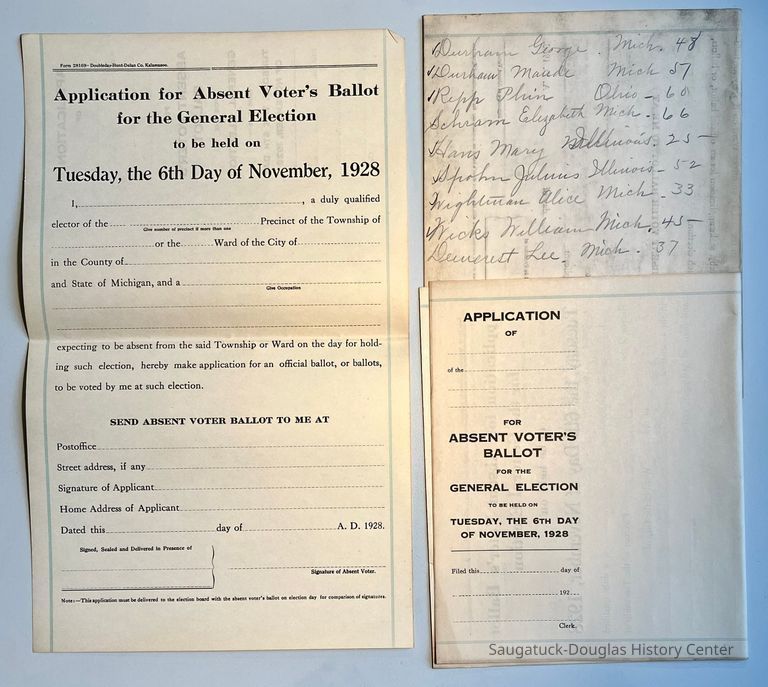 Form 28169—Doubleday-Hunt-Dolan Co. Kalamazoo.
Application for Absent Voter's Ballot
for the General Election
to be held on
Tuesday, the 6th Day of November, 1928
I,, a duly qualified
elector of the Precinct of the Township of
Give number of precinct if more than one
or the Ward of the City of
in the County of
and State of Michigan, and a
Give Occupation
expecting to be absent from the said Township or Ward on the day for hold-
ing such election, hereby make application for an official ballot, or ballots,
to be voted by me at such election.
SEND ABSENT VOTER BALLOT TO ME AT
Postoffice
Street address, if any
Signature of Applicant
Home Address of Applicant
Dated this day of A. D. 1928.
Signed, Sealed and Delivered in Presence of
Signature of Absent Voter.
Note:—This application must be delivered to the election board with the absent voter's ballot on election day for comparison of signatures.
Durham George. Mich. 48
Durham Maude Mich 57
Ripp Phin Ohio - 60
Schram Elizabeth Mich. - 66
Hans Mary Illinois. 25-
Spohn Julius Illinois - 52
Wightman Alice Mich. 33
Wicks William Mich. 45-
Demerest Lee. Mich. 37
APPLICATION
OF
of the
FOR
ABSENT VOTER'S
BALLOT
FOR THE
GENERAL ELECTION
TO BE HELD ON
TUESDAY, THE 6TH DAY
OF NOVEMBER, 1928
Filed this day of
192
Clerk.
Saugatuck-Douglas History Center